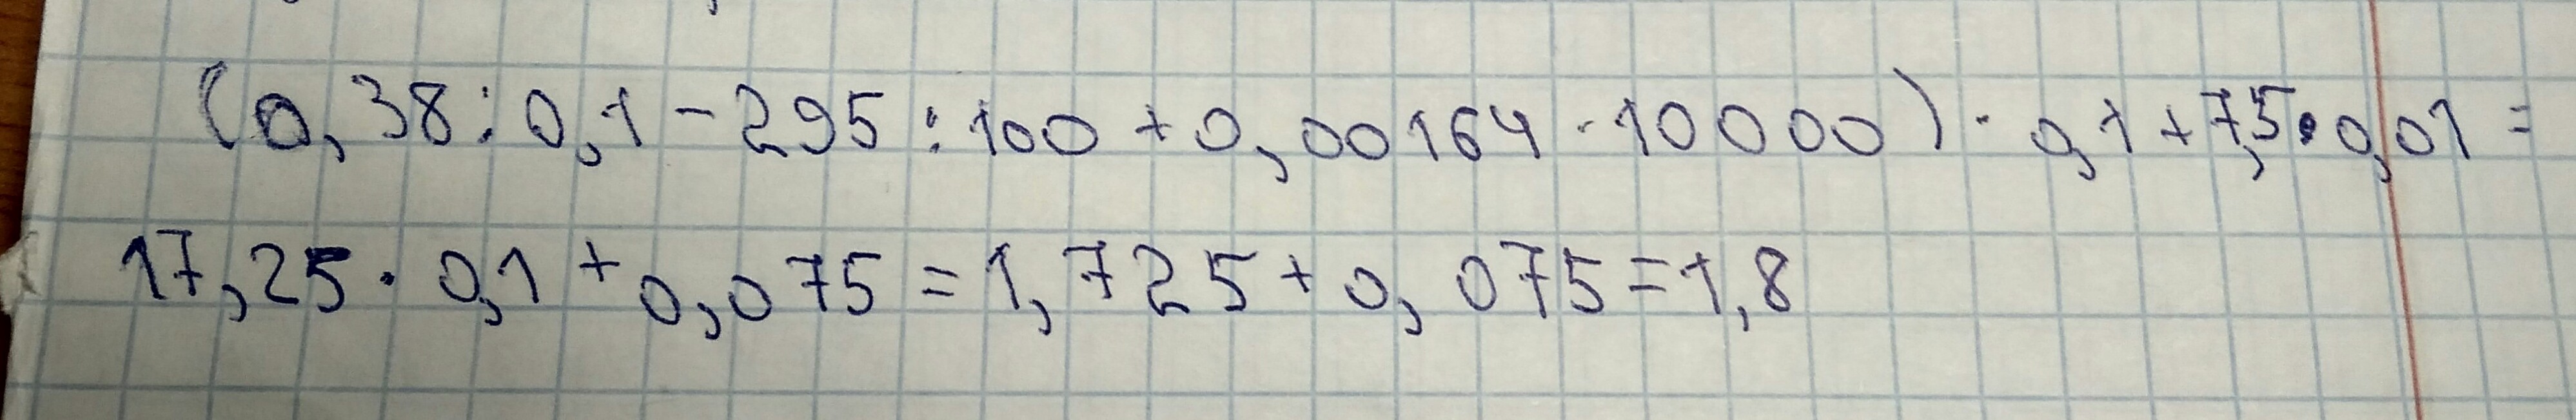 (0,38:0,1-295:100+0,00164·10000)·0,1+7,5·0,01=
17,25·0,1+0,075=1,725+0,075=1,8